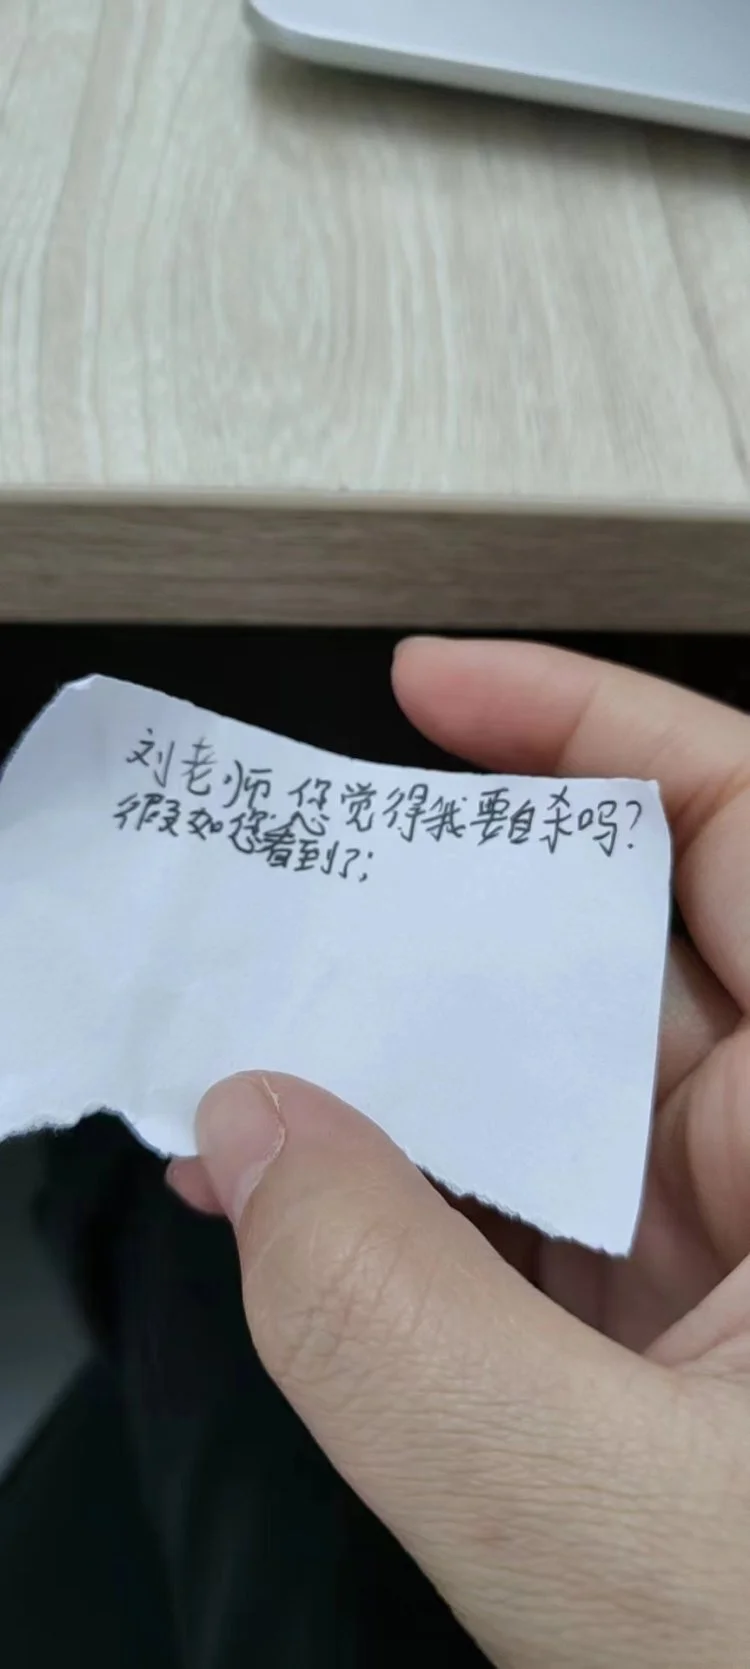 刘老师 您觉得我要自杀吗？
假如您看到了；